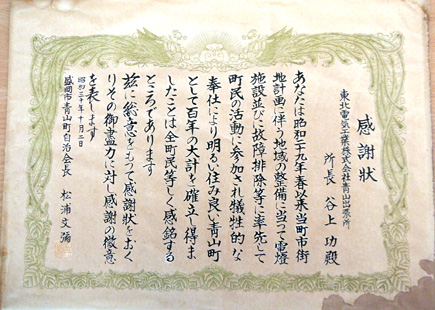 感謝状
東北電気工業株式会社青山出張所
所長 谷上功殿
あなたは昭和二十九年春以来当町市街
地計画に伴う地域の整備に当つて電燈
施設並びに故障排除等に率先して
町民の活動に参加され犠牲的な
奉仕により明るい住み良い青山町
として百年の大計を確立し得ま
したことは全町民等しく感銘する
ところであります
玆に総意をもつて感謝状をおく
りその御盡力に対し感謝の微意
を表します
昭和三十年十月二日
盛岡市青山町自治会長 松浦文彌